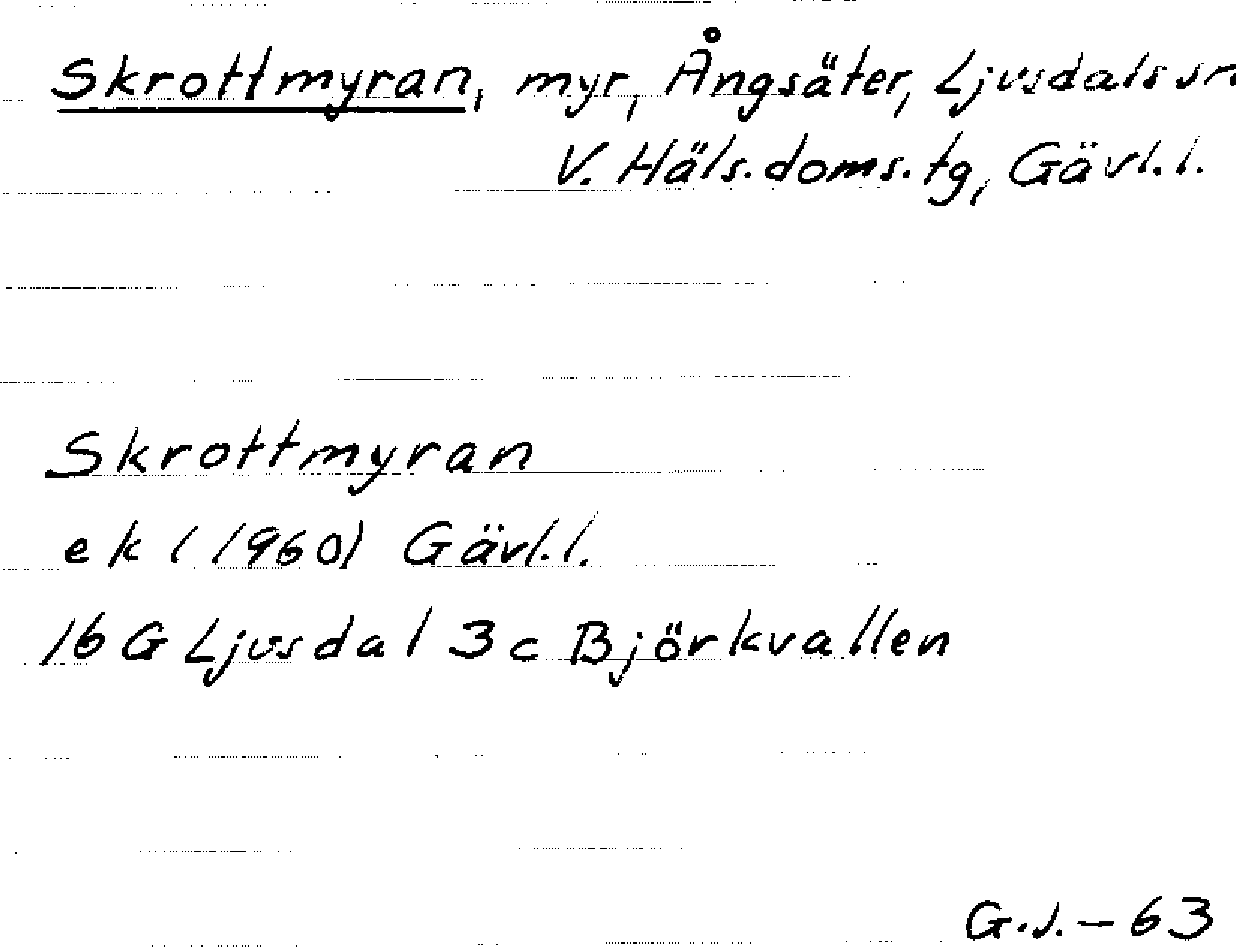 Skrottmyran, myr, Ångsäter, Ljusdals sn.
V. Häls. doms. tg, Gävl. l.
Skrottmyran
ek (1960) Gävl. l.
16 G Ljusdal 3 c Björkvallen
G.J. - 63